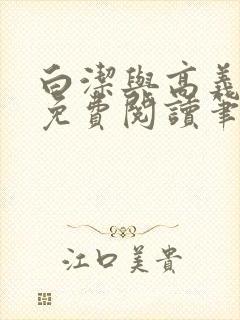 白潔與高義
免費閱讀筆
江口美貴